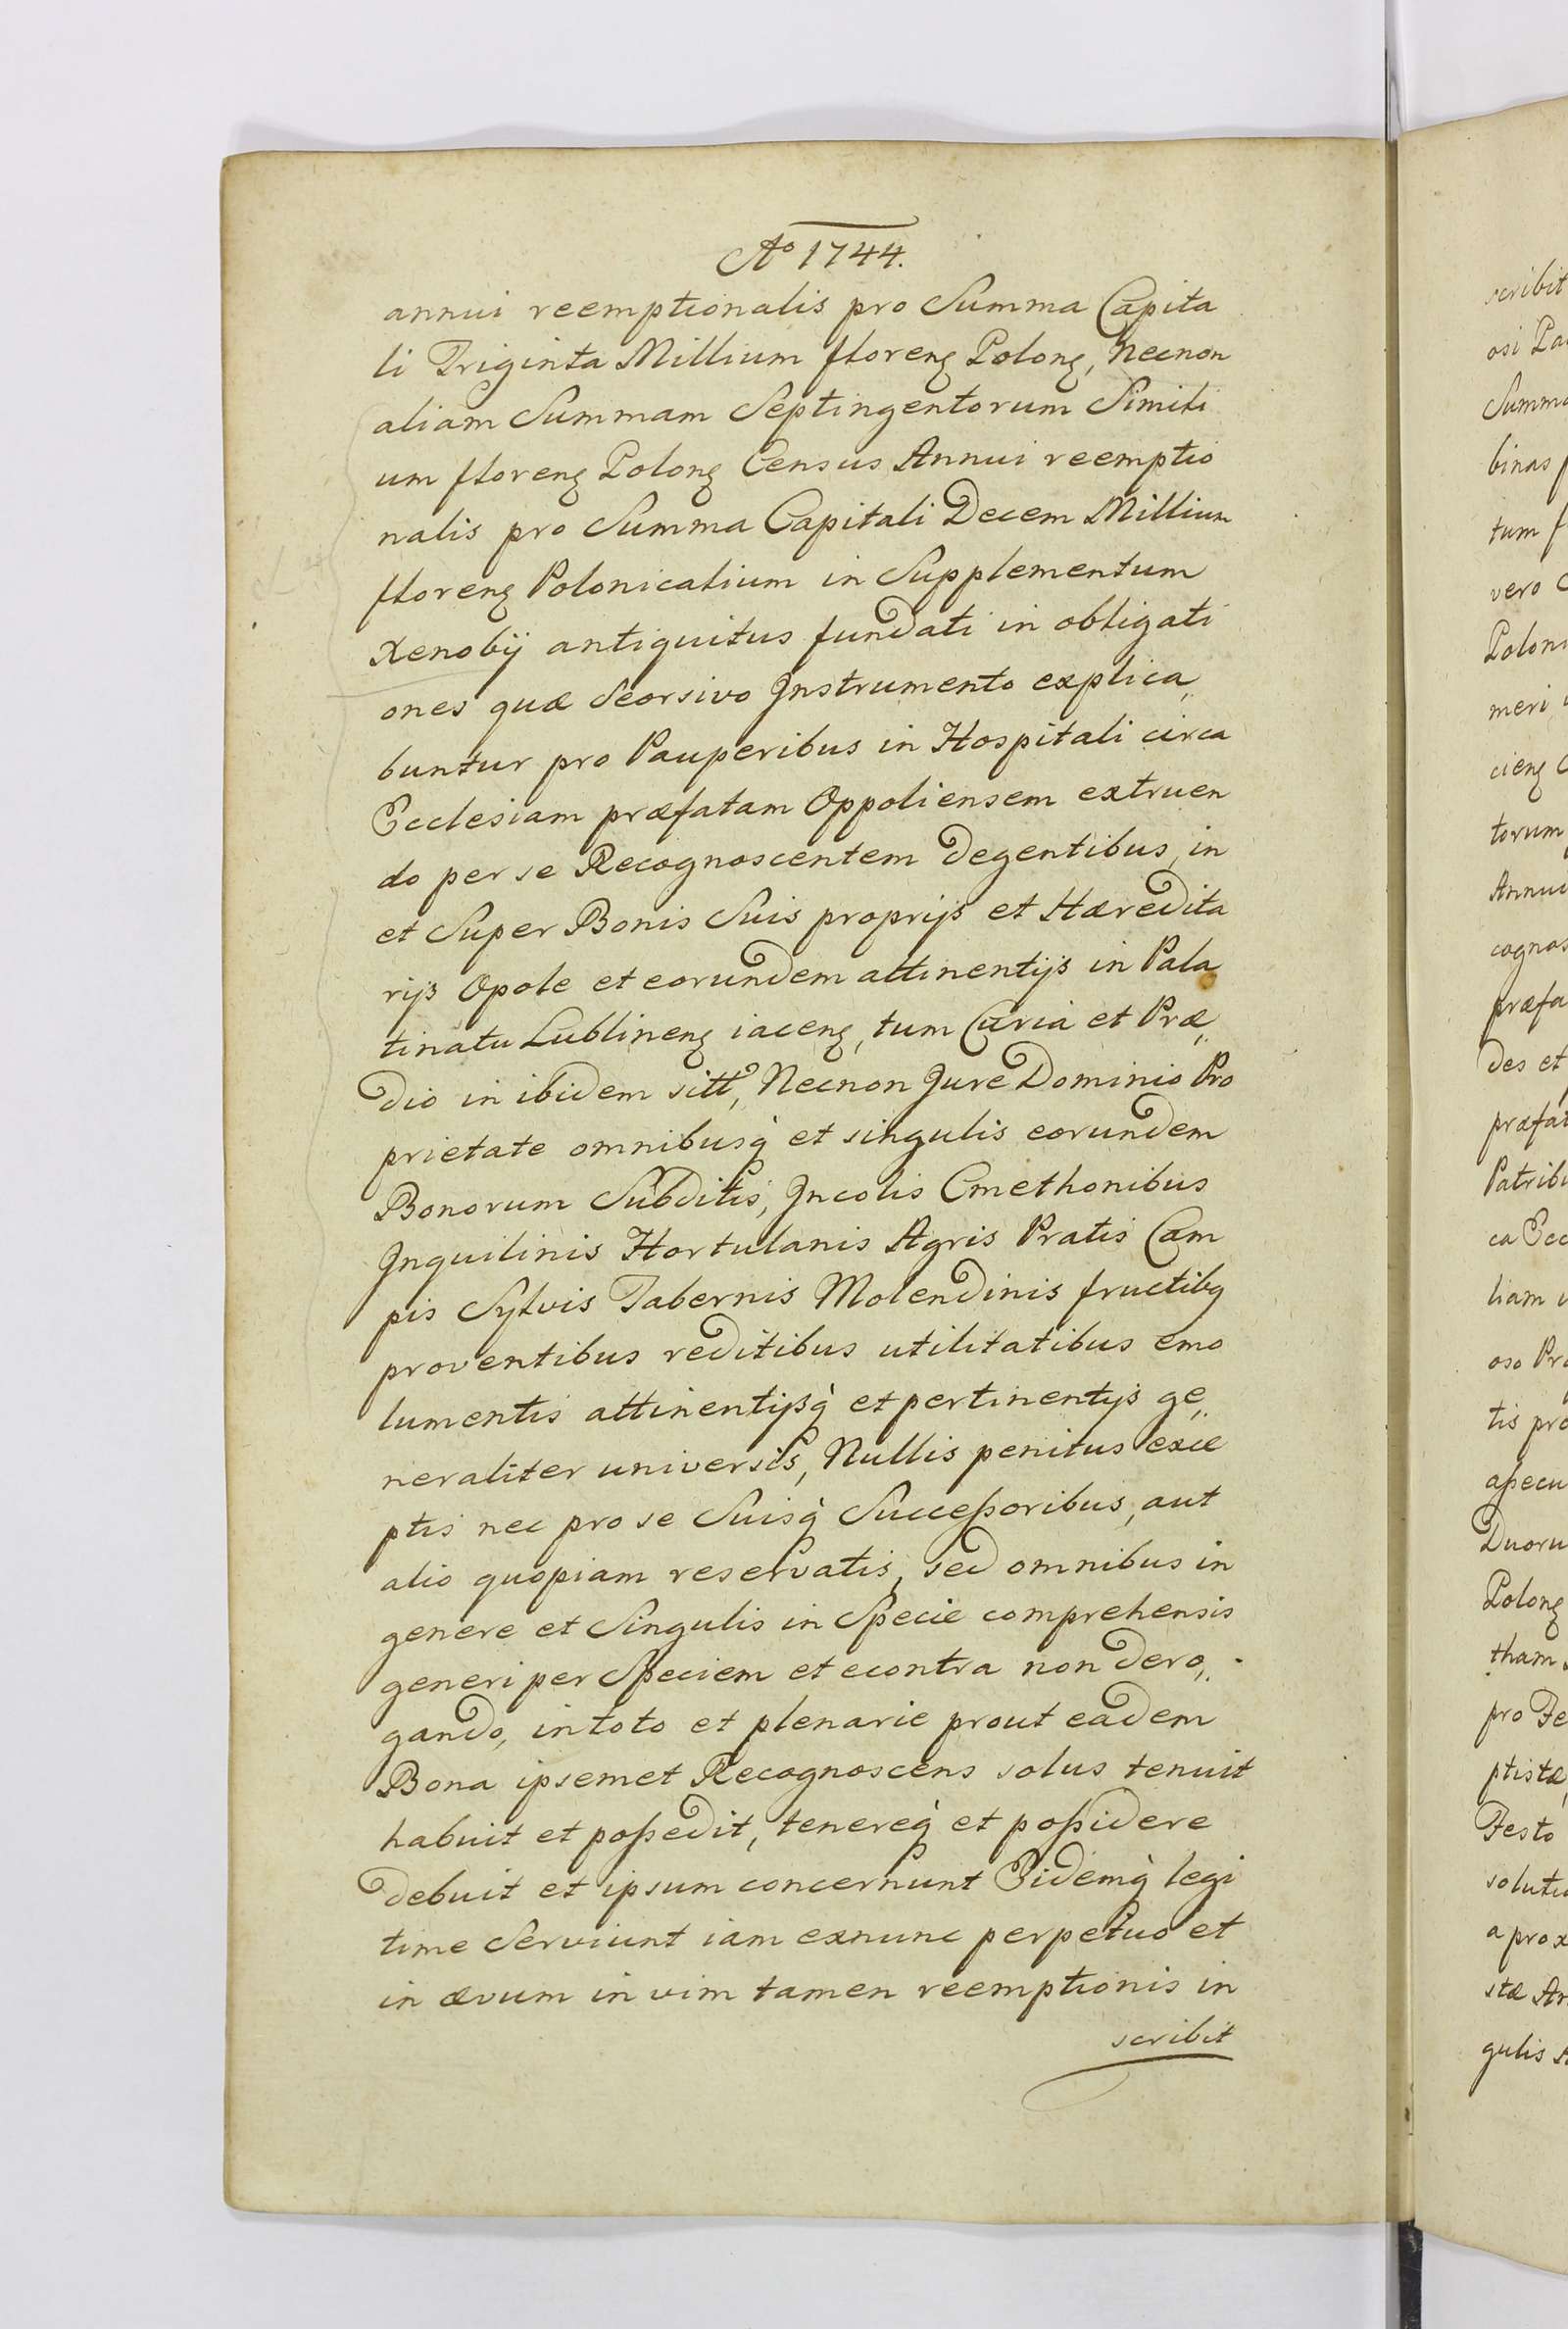 Ao 1744.
annui reemptionalis pro Summa Capita
li Triginta Millium floren̨ Polon̨, Necnon
aliam Summam Septingentorum Simili
um floren̨ Polon̨ Census Annui reemptio
nalis pro Summa Capitali Decem Millium
floren̨ Polonicalium in Supplementum
Xenobij antiquitus fundati in obligati
ones quæ Seorsivo Jnstrumento explica„
buntur pro Pauperibus in Hospitali circa
Ecclesiam præfatam Oppoliensem extruen
do per se Recognoscentem degentibus, in
et Super Bonis Suis proprijs et Hæredita
rijs Opole et eorundem attinentijs in Pala
tinatu Lublinen̨ iacen̨, tum Curia et Præ„
dio in ibidem sitt, Necnon Jure Dominio Pro
prietate omnibusq̀ et singulis eorundem
Bonorum Subditis, Jncolis Cmethonibus
Jnquilinis Hortulanis Agris Pratis Cam
pis Sylvis Tabernis Molendinis fructibq
proventibus reditibus utilitatibus emo
lumentis attinentijsq̀ et pertinentijs ge„
neraliter universis, Nullis penitus exce
ptis nec pro se Suisq̀ Succeßoribus, aut
alio quopiam reservatis, sed omnibus in
genere et Singulis in Specie comprehensis
generi per Speciem et econtra non dero„
gando, in toto et plenarie prout eadem
Bona ipsemet Recognoscens solus tenuit
habuit et poßedit, tenereq̀ et poßidere
debuit et ipsum concernunt Eidemq̀ legi
time Serviunt iam exnunc perpetuo et
in ævum in vim tamen reemptionis in
scribit
scribit
osi Pa
Summa
binas
tum f
vero
Poloni
meri
cien̨
torum
Annui
cognos
præfa
des et
præfat
Patribu
ca Ecc
liam
oso Pr
tis pro
aßecu
Duoru
Polon̨
tham
pro Fe
ptistæ
Festo
soluti
a prox
stæ Ar
gulis